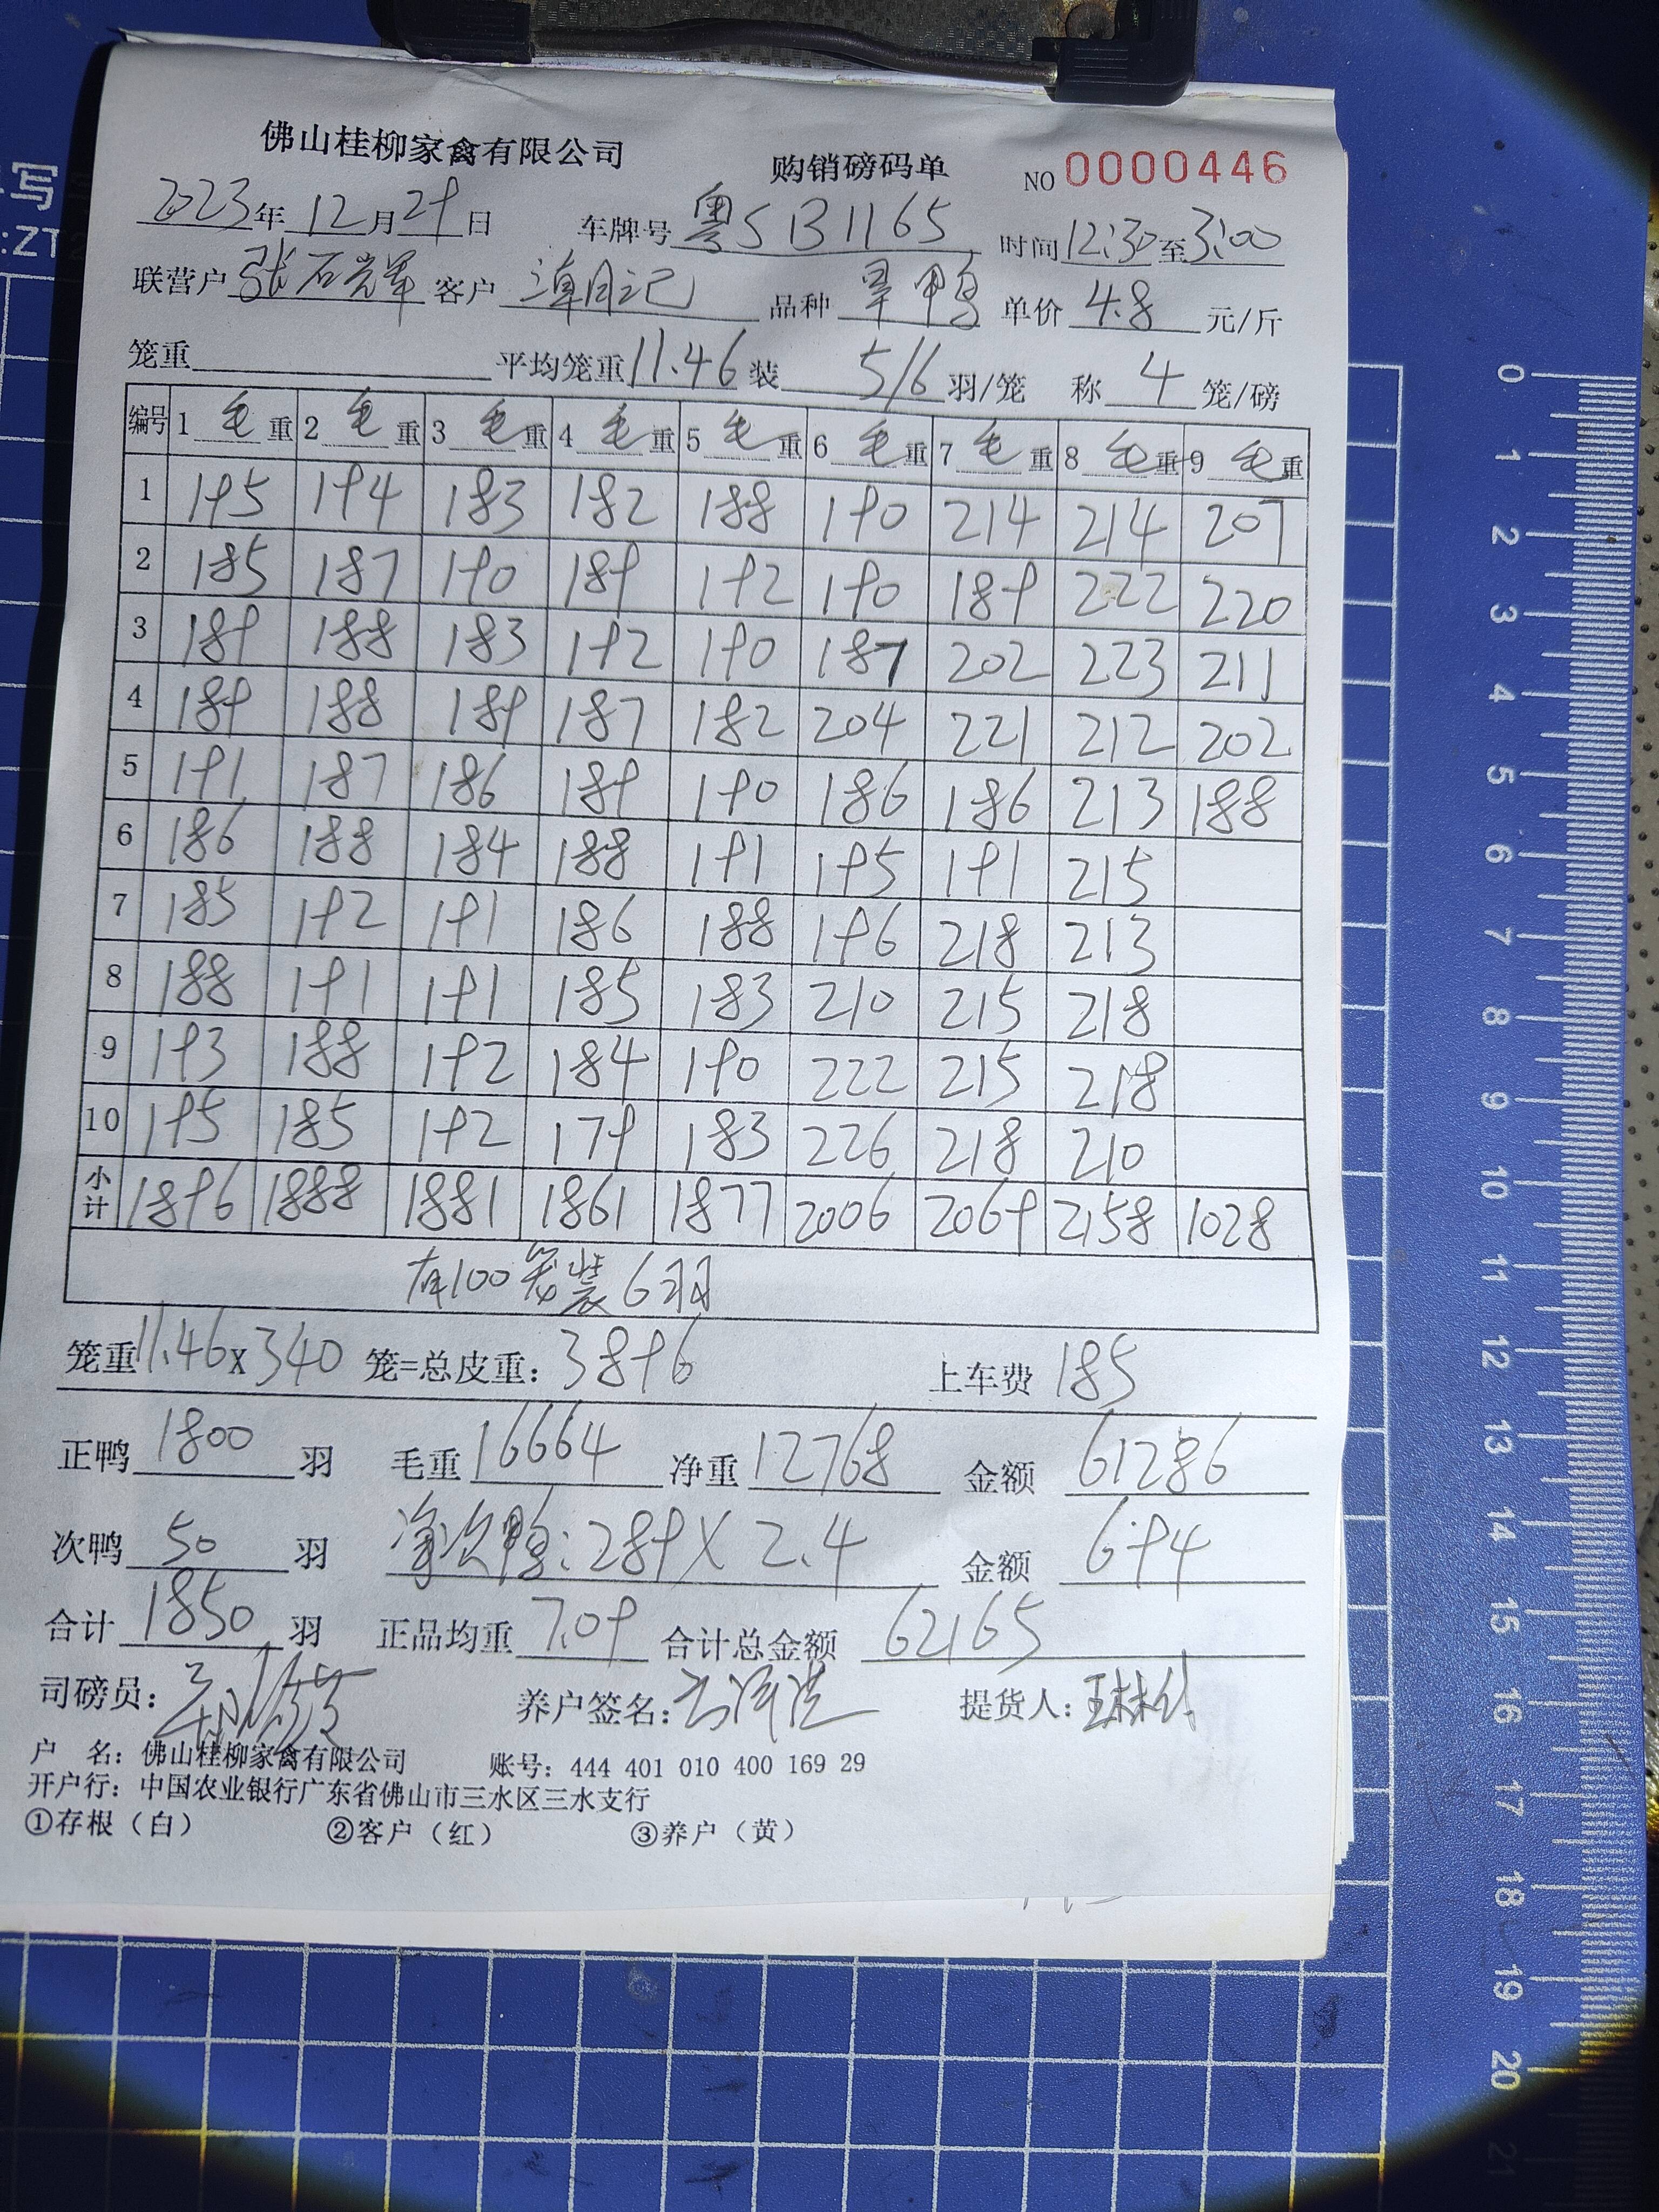 佛山桂柳家禽有限公司 购销磅码单 NO 0000446
2023年 12月 29日 车牌号 粤SB1165 时间 12:30至3:00
联营户 张石辉 客户 潭日记 品种 旱鸭 单价 4.8 元/斤
笼重 平均笼重 11.46 装 5/6 羽/笼 称 4 笼/磅
编号 1 毛重 2 毛重 3 毛重 4 毛重 5 毛重 6 毛重 7 毛重 8 毛重 9 毛重
1 195 194 183 182 188 190 214 214 207
2 185 187 190 189 192 190 189 222 220
3 189 188 183 192 190 187 202 223 211
4 189 188 189 187 182 204 221 212 202
5 191 187 186 189 190 186 186 213 188
6 186 188 184 188 191 195 191 215
7 185 192 191 186 188 196 218 213
8 188 191 191 185 183 210 215 218
9 193 188 192 184 190 222 215 218
10 195 185 192 179 183 226 218 210
小计 1896 1888 1881 1861 1877 2006 2069 2158 1028
有100笼装6羽
笼重 11.46 x 340 笼=总皮重: 3896 上车费 185
正鸭 1800 羽 毛重 16664 净重 12768 金额 61286
次鸭 50 羽 净次鸭: 289 X 2.4 金额 694
合计 1850 羽 正品均重 7.09 合计总金额 62165
司磅员: 养户签名: 提货人:
户 名: 佛山桂柳家禽有限公司 账号: 444 401 010 400 169 29
开户行: 中国农业银行广东省佛山市三水区三水支行
①存根（白） ②客户（红） ③养户（黄）
0
1
2
3
4
5
6
7
8
9
10
11
12
13
14
15
16
17
18
19
20
21